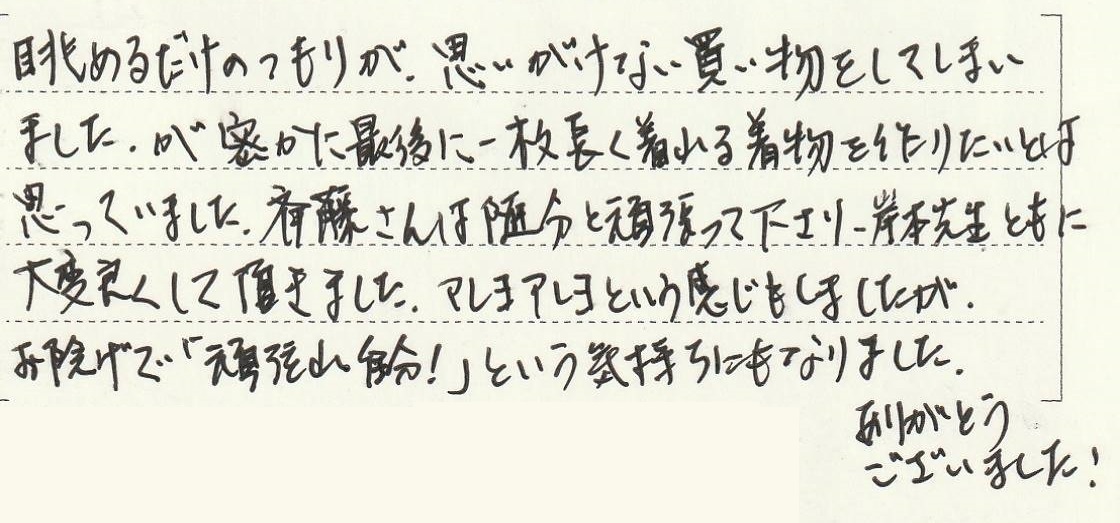 眺めるだけのつもりが、思いがけない買い物をしてしまい
ました。が密かに最後に一枚長く着れる着物を作りたいとは
思っていました。斉藤さんは随分と頑張って下さり、岸本先生ともに
大変良くして頂きました。アレヨアレヨという感じもしましたが、
お陰げで「頑張れ自分!」という気持ちにもなりました。
ありがとう
ございました!